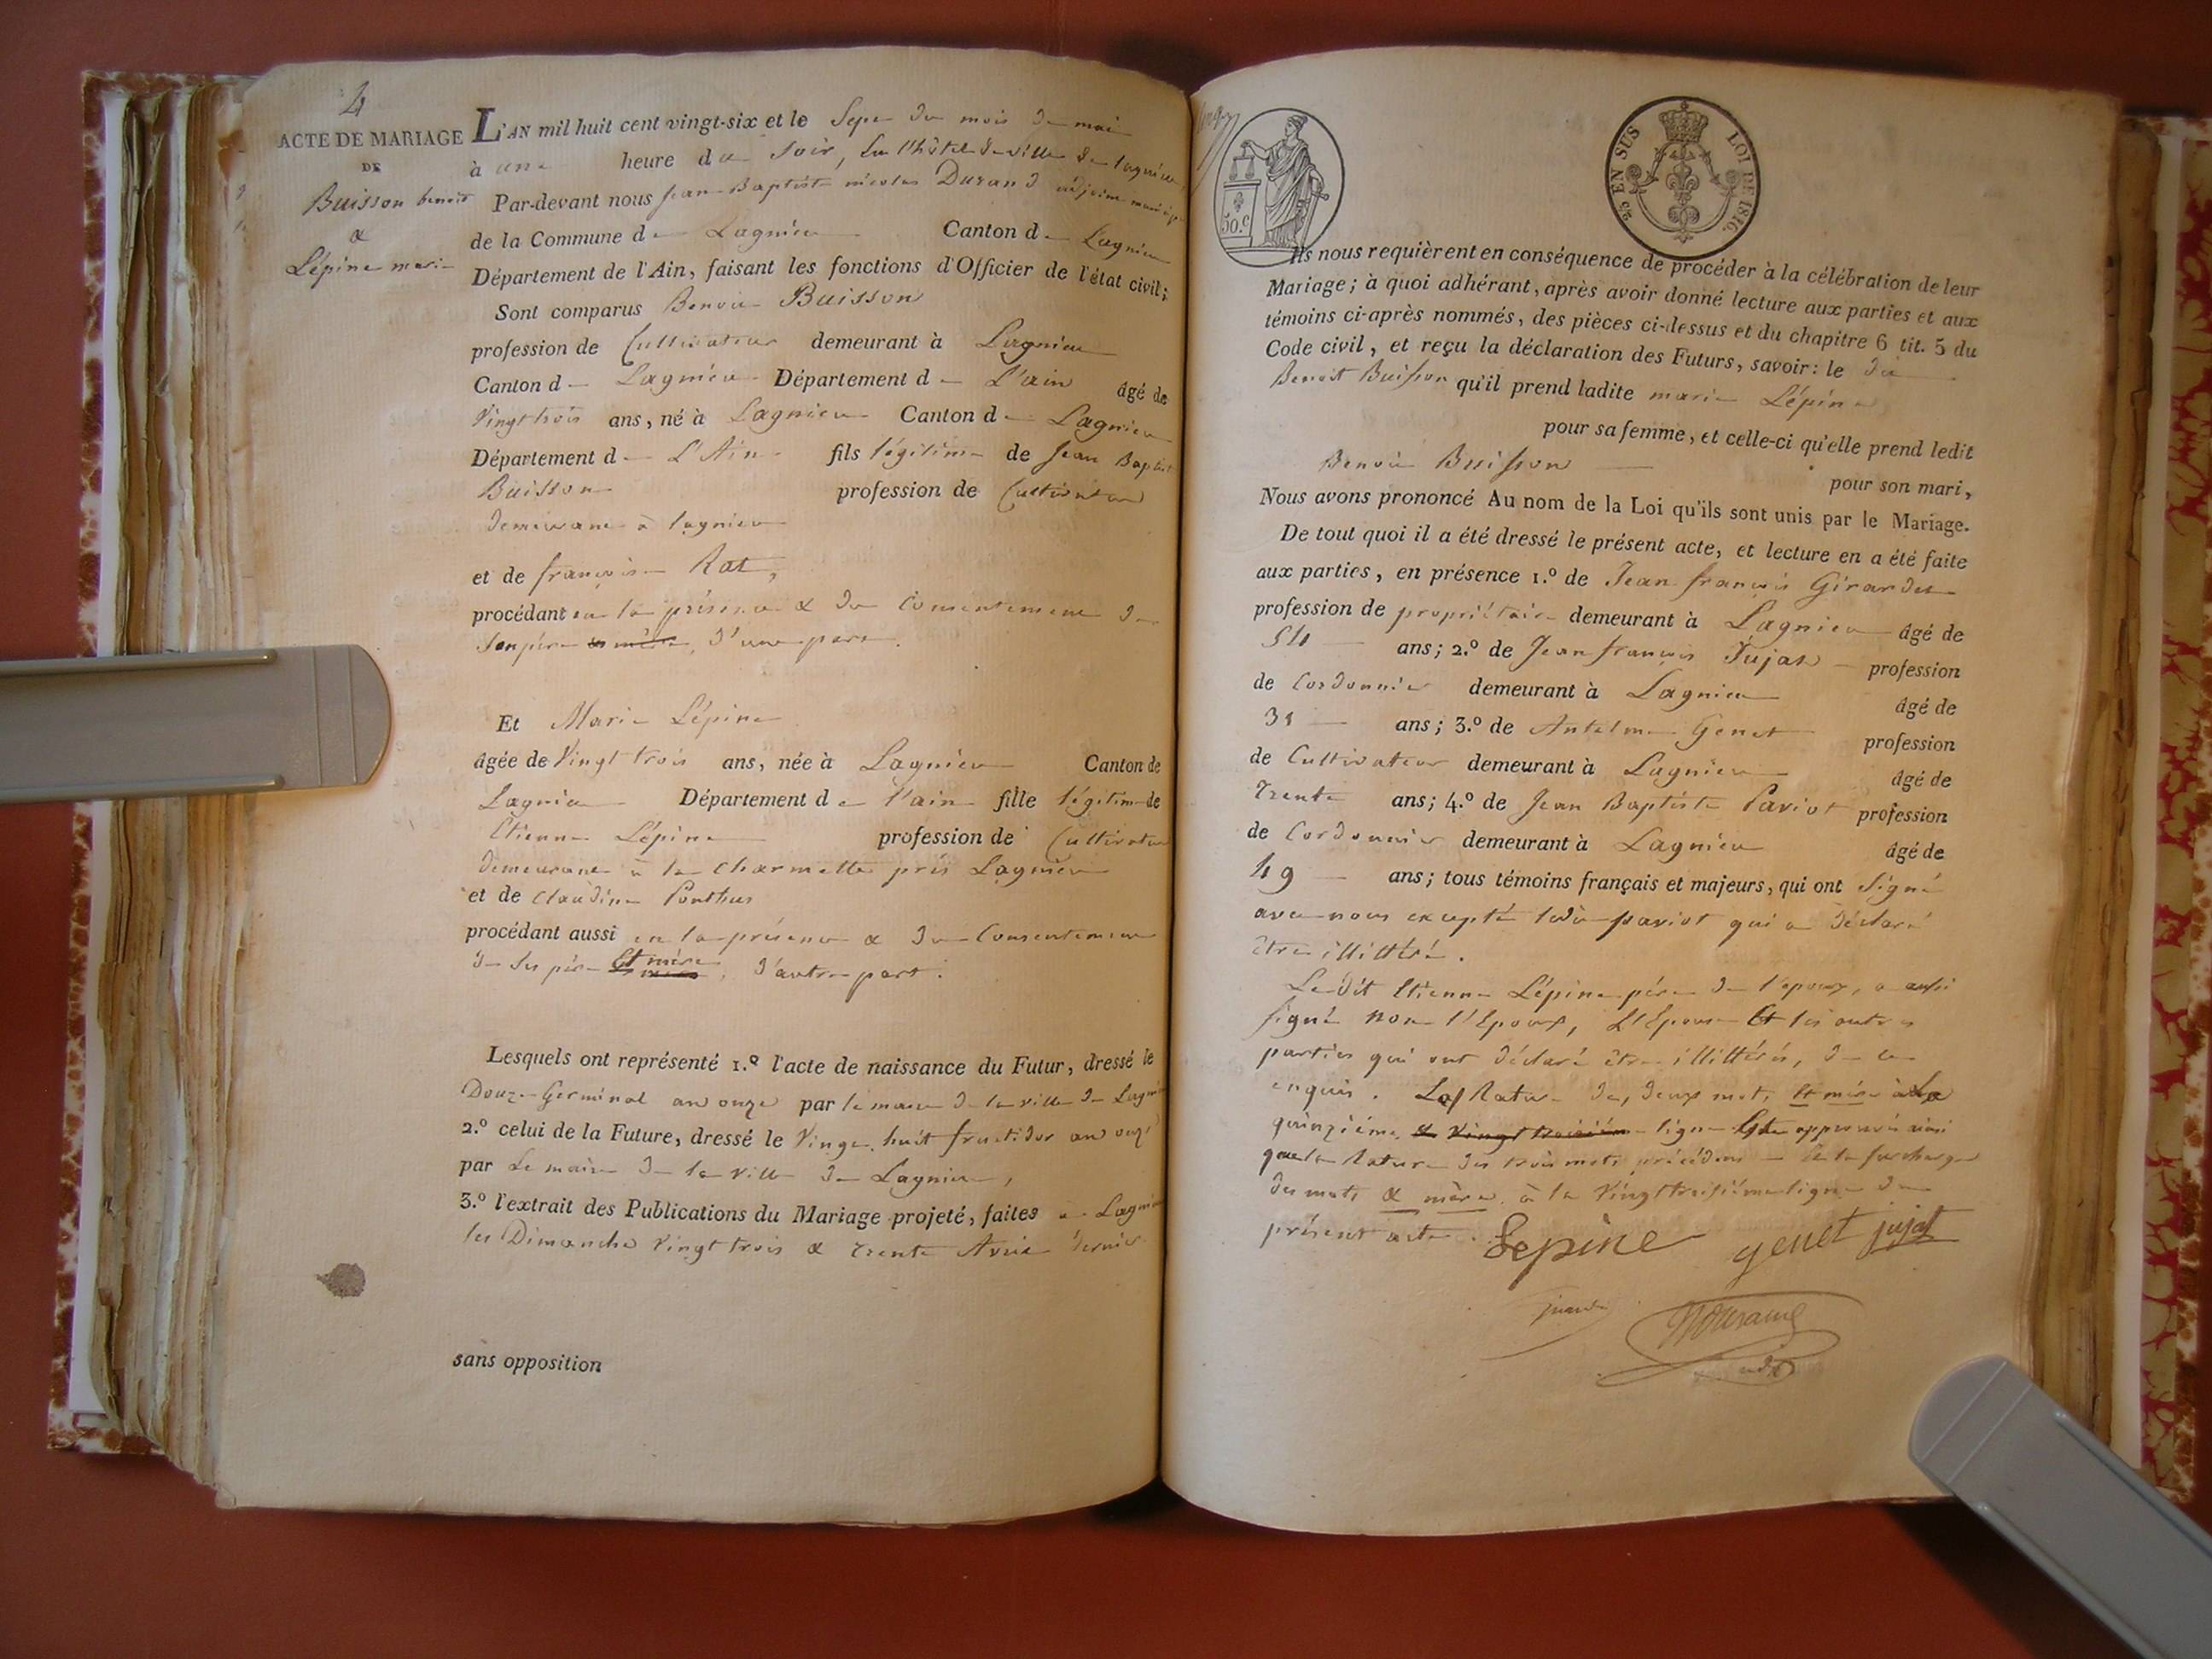 4
ACTE DE MARIAGE
DE
Buisson benoit
&
Lépine marie
L'AN mil huit cent vingt-six et le Sept du mois de mai
à une heure du Soir, En l'hôtel de ville de lagnieu
Par-devant nous jean-Baptiste nicolas Durand adjoint
de la Commune de Lagnieu Canton de Lagnieu
Département de l'Ain, faisant les fonctions d'Officier de l'état civil;
Sont comparus Benoit Buisson
profession de Cultivateur demeurant à Lagnieu
Canton de Lagnieu Département de L'ain âgé de
Vingt trois ans, né à Lagnieu Canton de Lagnieu
Département de L'Ain fils légitime de Jean Baptiste
Buisson profession de Cultivateur
demeurant à lagnieu
et de françoise Rat,
procédant en la présence & du Consentement de
Son père et mère, d'une part.
Et Marie Lépine
âgée de Vingt trois ans, née à Lagnieu Canton de
Lagnieu Département de l'ain fille légitime de
Etienne Lépine profession de Cultivateur
demeurant à la Charmette près Lagnieu
et de Claudine Ponthus
procédant aussi en la présence & du Consentement
de Ses père Et mère, d'autre part.
Lesquels ont représenté 1.º l'acte de naissance du Futur, dressé le
Douze Germinal an onze par le maire de la ville de Lagnieu
2.º celui de la Future, dressé le Vingt huit fructidor an onze
par Le maire de la ville de Lagnieu,
3.º l'extrait des Publications du Mariage projeté, faites à Lagnieu
les Dimanche Vingt trois & Trente Avril dernier
sans opposition
50.C
25 EN SUS
LOI DE 1816
Ils nous requièrent en conséquence de procéder à la célébration de leur
Mariage; à quoi adhérant, après avoir donné lecture aux parties et aux
témoins ci-après nommés, des pièces ci-dessus et du chapitre 6 tit. 5 du
Code civil, et reçu la déclaration des Futurs, savoir: le dit
Benoit Buisson qu'il prend ladite marie Lépine
pour sa femme, et celle-ci qu'elle prend ledit
Benoit Buisson pour son mari,
Nous avons prononcé Au nom de la Loi qu'ils sont unis par le Mariage.
De tout quoi il a été dressé le présent acte, et lecture en a été faite
aux parties, en présence 1.º de Jean françois Girardet
profession de propriétaire demeurant à Lagnieu âgé de
54 ans; 2.º de Jean françois Jujat profession
de Cordonnier demeurant à Lagnieu âgé de
31 ans; 3.º de Antelme Genet profession
de Cultivateur demeurant à Lagnieu âgé de
Trente ans; 4.º de Jean Baptiste Paviot profession
de Cordonnier demeurant à Lagnieu âgé de
49 ans; tous témoins français et majeurs, qui ont Signé
avec nous excepté ledit paviot qui a déclaré
être illittéré.
Le dit Etienne Lépine père de l'epoux, a aussi
signé non l'Epoux, L'Epouse Et les autres
parties qui ont déclaré être illittérés, de ce
enquis. La Rature des deux mots et mère à La
quinzième & Vingt troisième ligne Est approuvée ainsi
que la Rature des trois mots précédens et la surcharge
des mots & mère à la Vingt troisième ligne du
présent acte.
Lepine genet jujat